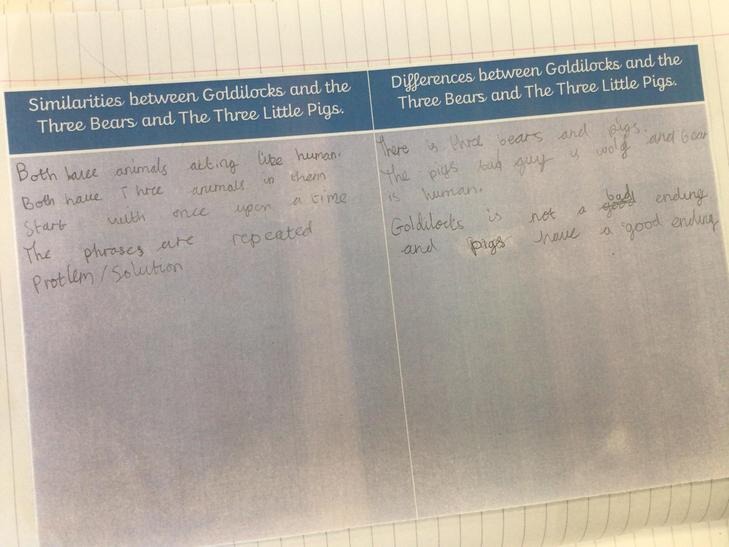 Similarities between Goldilocks and the
Three Bears and The Three Little Pigs.
Both have animals acting like human.
Both have Three animals in them
Start with once upon a time
The phrases are repeated
Protlem/Solution
Differences between Goldilocks and the
Three Bears and The Three Little Pigs.
There is three bears and pigs.
The pigs bad guy is wolf and
is human.
Goldilocks is not a bad ending
and pigs have a good ending